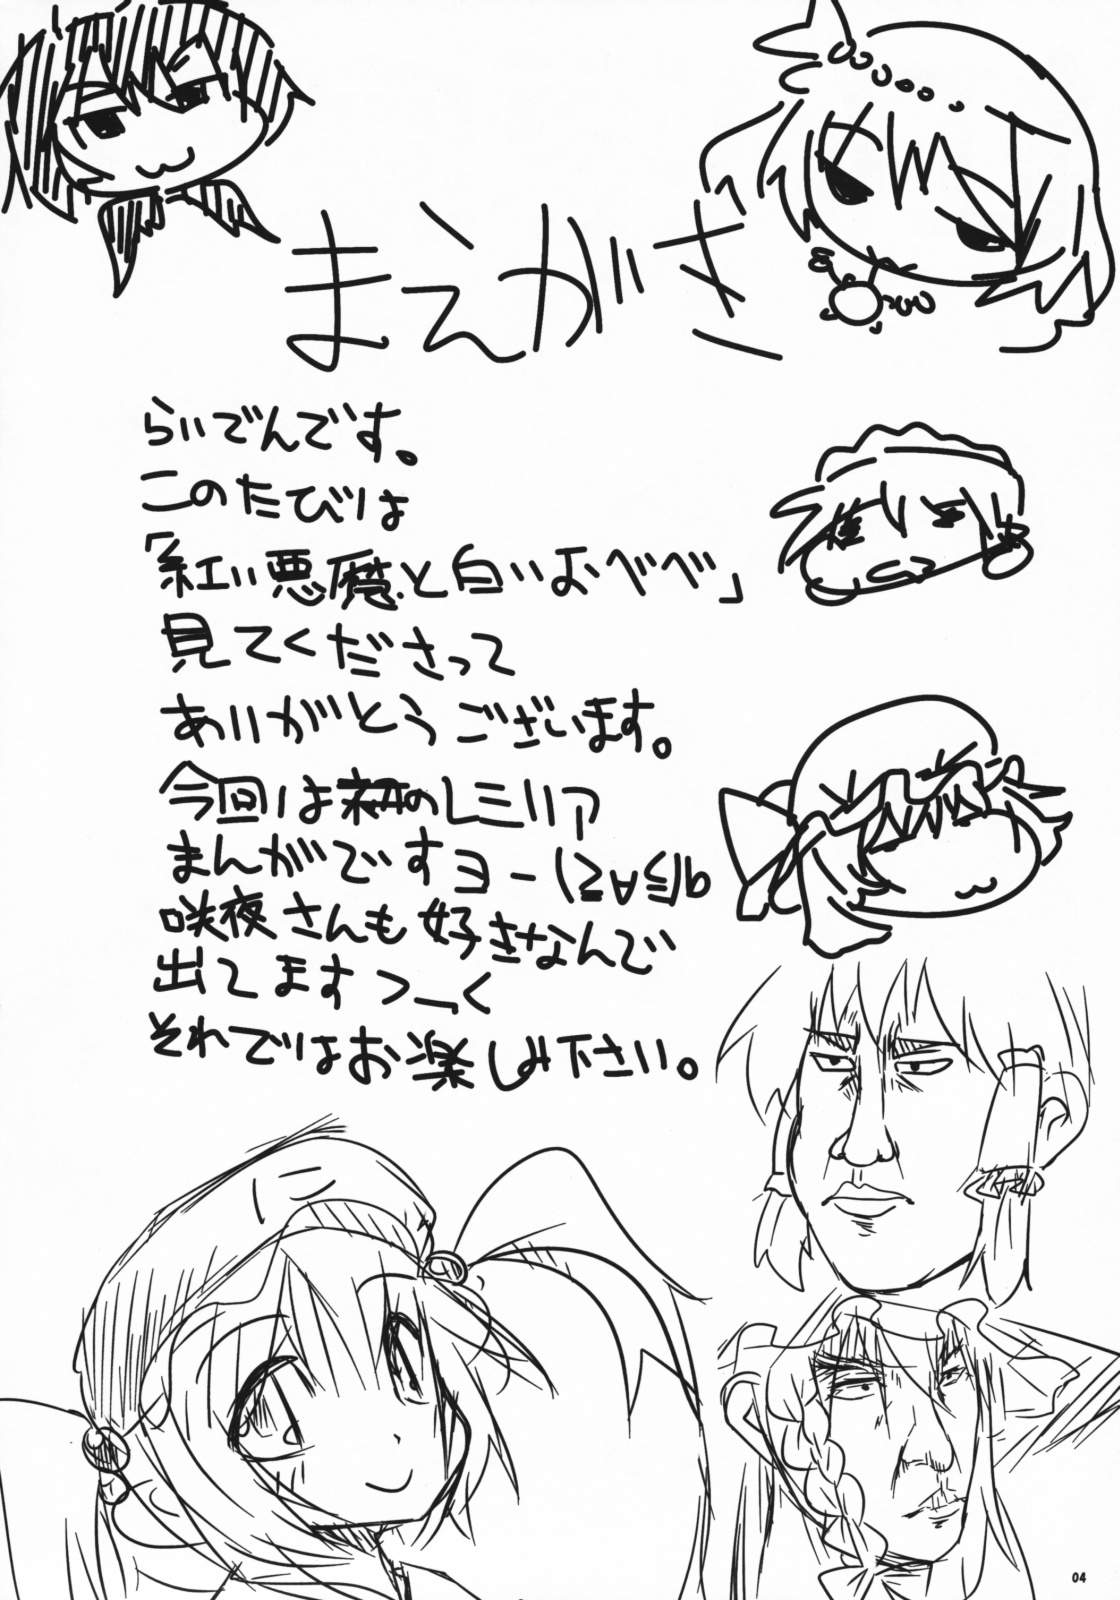 まえがき
らいでんです。
このたびは
「紅い悪魔と白いおべべ」
見てくださって
ありがとうございます。
今回は初のレミリア
まんがですヨー(≧∀≦)b
咲夜さんも好きなんで
出てます
それではお楽しみ下さい。
04